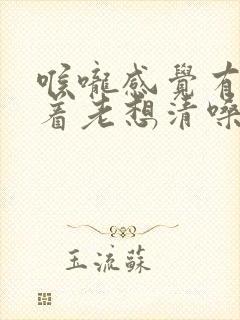 喉嚨感覺有
着老想清嗓
玉流蘇